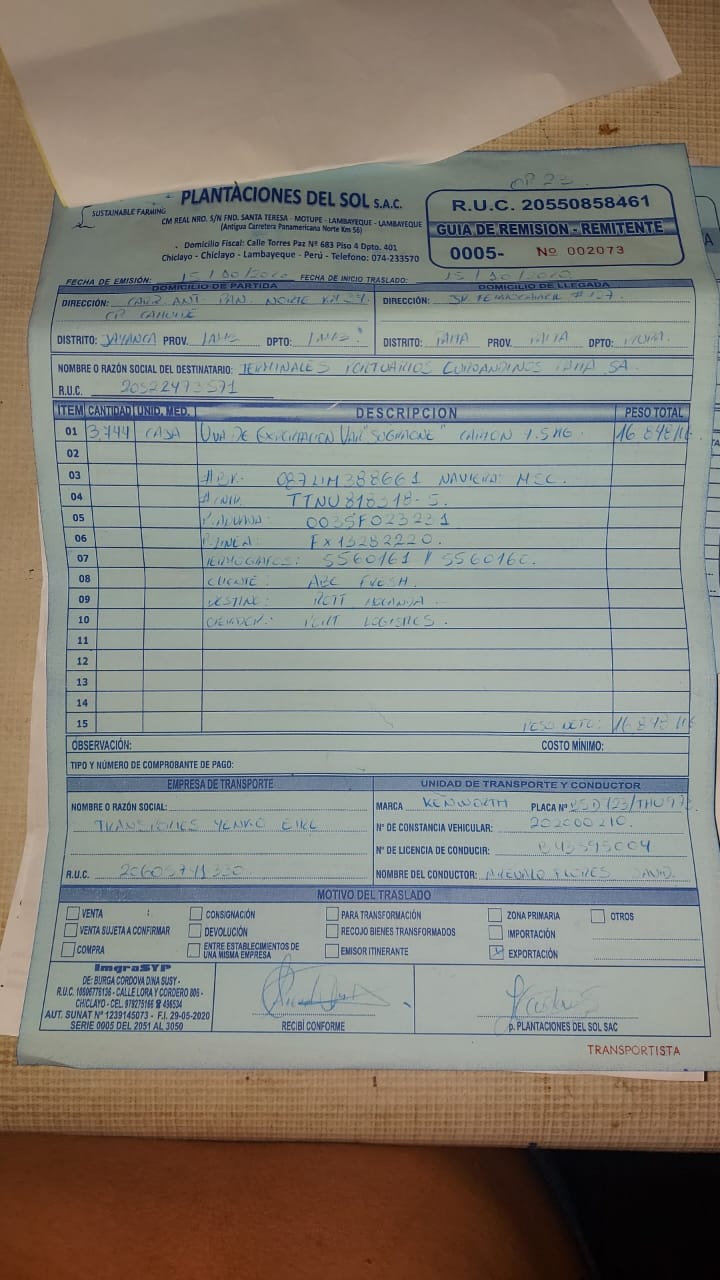 OP 23
SUSTAINABLE FARMING
PLANTACIONES DEL SOL S.A.C.
CM REAL NRO. S/N FND. SANTA TERESA - MOTUPE - LAMBAYEQUE - LAMBAYEQUE
(Antigua Carretera Panamericana Norte Km 56)
Domicilio Fiscal: Calle Torres Paz Nº 683 Piso 4 Dpto. 401
Chiclayo - Chiclayo - Lambayeque - Perú - Telefono: 074-233570
R.U.C. 20550858461
GUIA DE REMISION - REMITENTE
0005- Nº 002073
FECHA DE EMISIÓN: 15/10/2020 FECHA DE INICIO TRASLADO: 15/10/2020
DOMICILIO DE PARTIDA
DIRECCIÓN: ANT. PAN. NORTE KM
CP
DISTRITO: JAYANCA PROV. LAMB DPTO: LAMB.
DOMICILIO DE LLEGADA
DIRECCIÓN:
DISTRITO: PAITA PROV. PAITA DPTO: PIURA.
NOMBRE O RAZÓN SOCIAL DEL DESTINATARIO: TERMINALES PORTUARIOS EUROANDINOS PAITA SA
R.U.C. 20522473571
ITEM CANTIDAD UNID. MED. DESCRIPCION PESO TOTAL
01 3,744 CAJA UVA DE EXPORTACION VAR "SUGRAONE" 16 848 KG
02
03 #BK: NAVIERA:
04 TTNU 818318-5
05 P. ADUANA:
06 P. LINEA: FX13282220.
07 TERMOGRAFOS: 5560161 /
08 CLIENTE: ABC FRESH.
09 DESTINO: ROTT HOLANDA.
10 OPERADOR: LOGISTICS.
11
12
13
14
15 PESO NETO: 16 848 KG
OBSERVACIÓN: COSTO MÍNIMO:
TIPO Y NÚMERO DE COMPROBANTE DE PAGO:
EMPRESA DE TRANSPORTE
NOMBRE O RAZÓN SOCIAL:
TRANSPORTES EIRL
R.U.C. 20605741330
UNIDAD DE TRANSPORTE Y CONDUCTOR
MARCA KENWORTH PLACA Nº
Nº DE CONSTANCIA VEHICULAR: 202000210.
Nº DE LICENCIA DE CONDUCIR: B43595004
NOMBRE DEL CONDUCTOR: AREVALO FLORES DAVID.
MOTIVO DEL TRASLADO
VENTA CONSIGNACIÓN PARA TRANSFORMACIÓN ZONA PRIMARIA OTROS
VENTA SUJETA A CONFIRMAR DEVOLUCIÓN RECOJO BIENES TRANSFORMADOS IMPORTACIÓN
COMPRA ENTRE ESTABLECIMIENTOS DE UNA MISMA EMPRESA EMISOR ITINERANTE EXPORTACIÓN
ImgraSYP
DE: BURGA CORDOVA DINA SUSY -
R.U.C. 10596776136 - CALLE LORA Y CORDERO 806 -
CHICLAYO - CEL. 978275166 496534
AUT. SUNAT Nº 1239145073 - F.I. 29-05-2020
SERIE 0005 DEL 2051 AL 3050
RECIBÍ CONFORME
p. PLANTACIONES DEL SOL SAC
TRANSPORTISTA